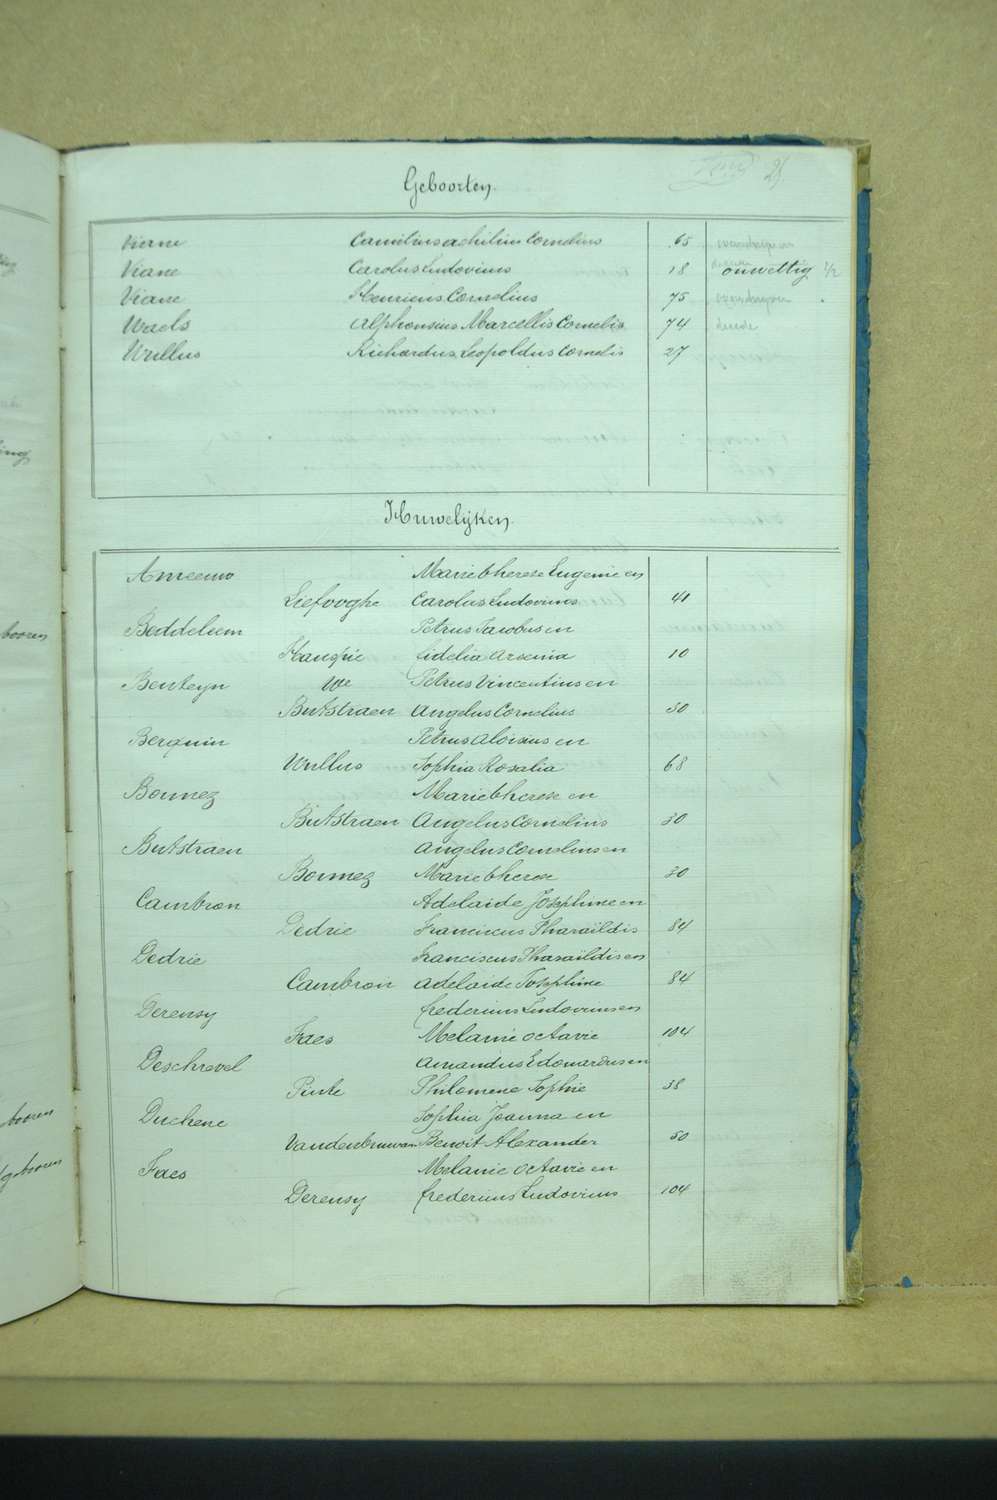 25
Geboorten.
Viane Camilius Achilius Cornelius 65
Viane Carolus Ludovicus 18 onwettig 1/2
Viane Henricus Cornelius 75
Waels Alphonsius Marcellis Cornelis 74
Wullus Richardus Leopoldus Cornelis 27
Huwelijken.
Ameeuw Marie Therese Eugenie en
Liefooghe Carolus Ludovicus 41
Beddeleem Petrus Jacobus en
Hanspie Fidelia Arsenia 10
Benteyn We Petrus Vincentius en
Butstraen Angelus Cornelius 30
Berquin Petrus Aloisius en
Wullus Sophia Rosalia 68
Bonnez Marie Therese en
Butstraen Angelus Cornelius 30
Butstraen Angelus Cornelius en
Bonnez Marie Therese 30
Cambron Adelaide Josephine en
Dedrie Franciscus Pharaïldis 84
Dedrie Franciscus Pharaïldis en
Cambron Adelaide Josephine 84
Derensy Fredericus Ludovicus en
Faes Melanie Octavie 104
Deschrevel Amandus Edouardus en
Pinte Philomene Sophie 38
Duchene Sophia Joanna en
Benoit Alexander 50
Faes Melanie Octavie en
Derensy Fredericus Ludovicus 104